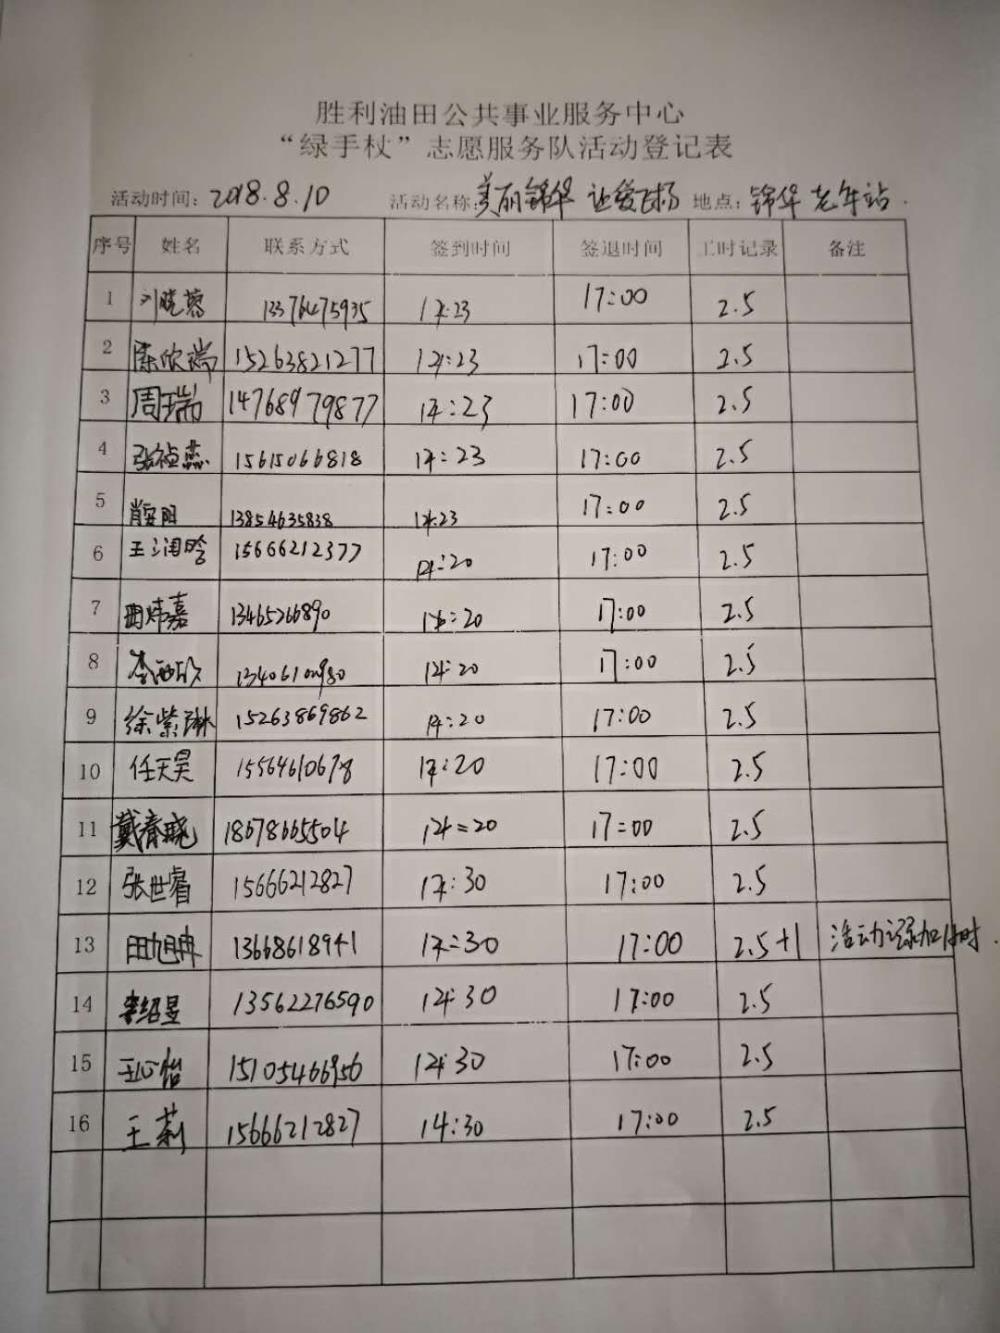 胜利油田公共事业服务中心
“绿手杖”志愿服务队活动登记表
活动时间：2018.8.10 活动名称：美丽锦华 让爱飞扬 地点：锦华老年站.
序号 姓名 联系方式 签到时间 签退时间 工时记录 备注
1 刘晓蓉 13376475935 14:23 17:00 2.5
2 陈欣瑞 15263821277 14:23 17:00 2.5
3 周瑞 14768979877 14:23 17:00 2.5
4 张祯蕊 15615066818 14:23 17:00 2.5
5 肖安阳 13854635838 14:23 17:00 2.5
6 王润晗 15666212377 14:20 17:00 2.5
7 田炜嘉 13465266890 14:20 17:00 2.5
8 14:20 17:00 2.5
9 徐紫琳 15263869862 14:20 17:00 2.5
10 任天昊 15564610678 14:20 17:00 2.5
11 戴春晓 18678665504 14:20 17:00 2.5
12 张世睿 15666212827 14:30 17:00 2.5
13 田旭冉 13668618941 14:30 17:00 2.5+1 活动记录加1小时.
14 李绍昱 13562276590 14:30 17:00 2.5
15 王心怡 15105466956 14:30 17:00 2.5
16 王莉 15666212827 14:30 17:00 2.5